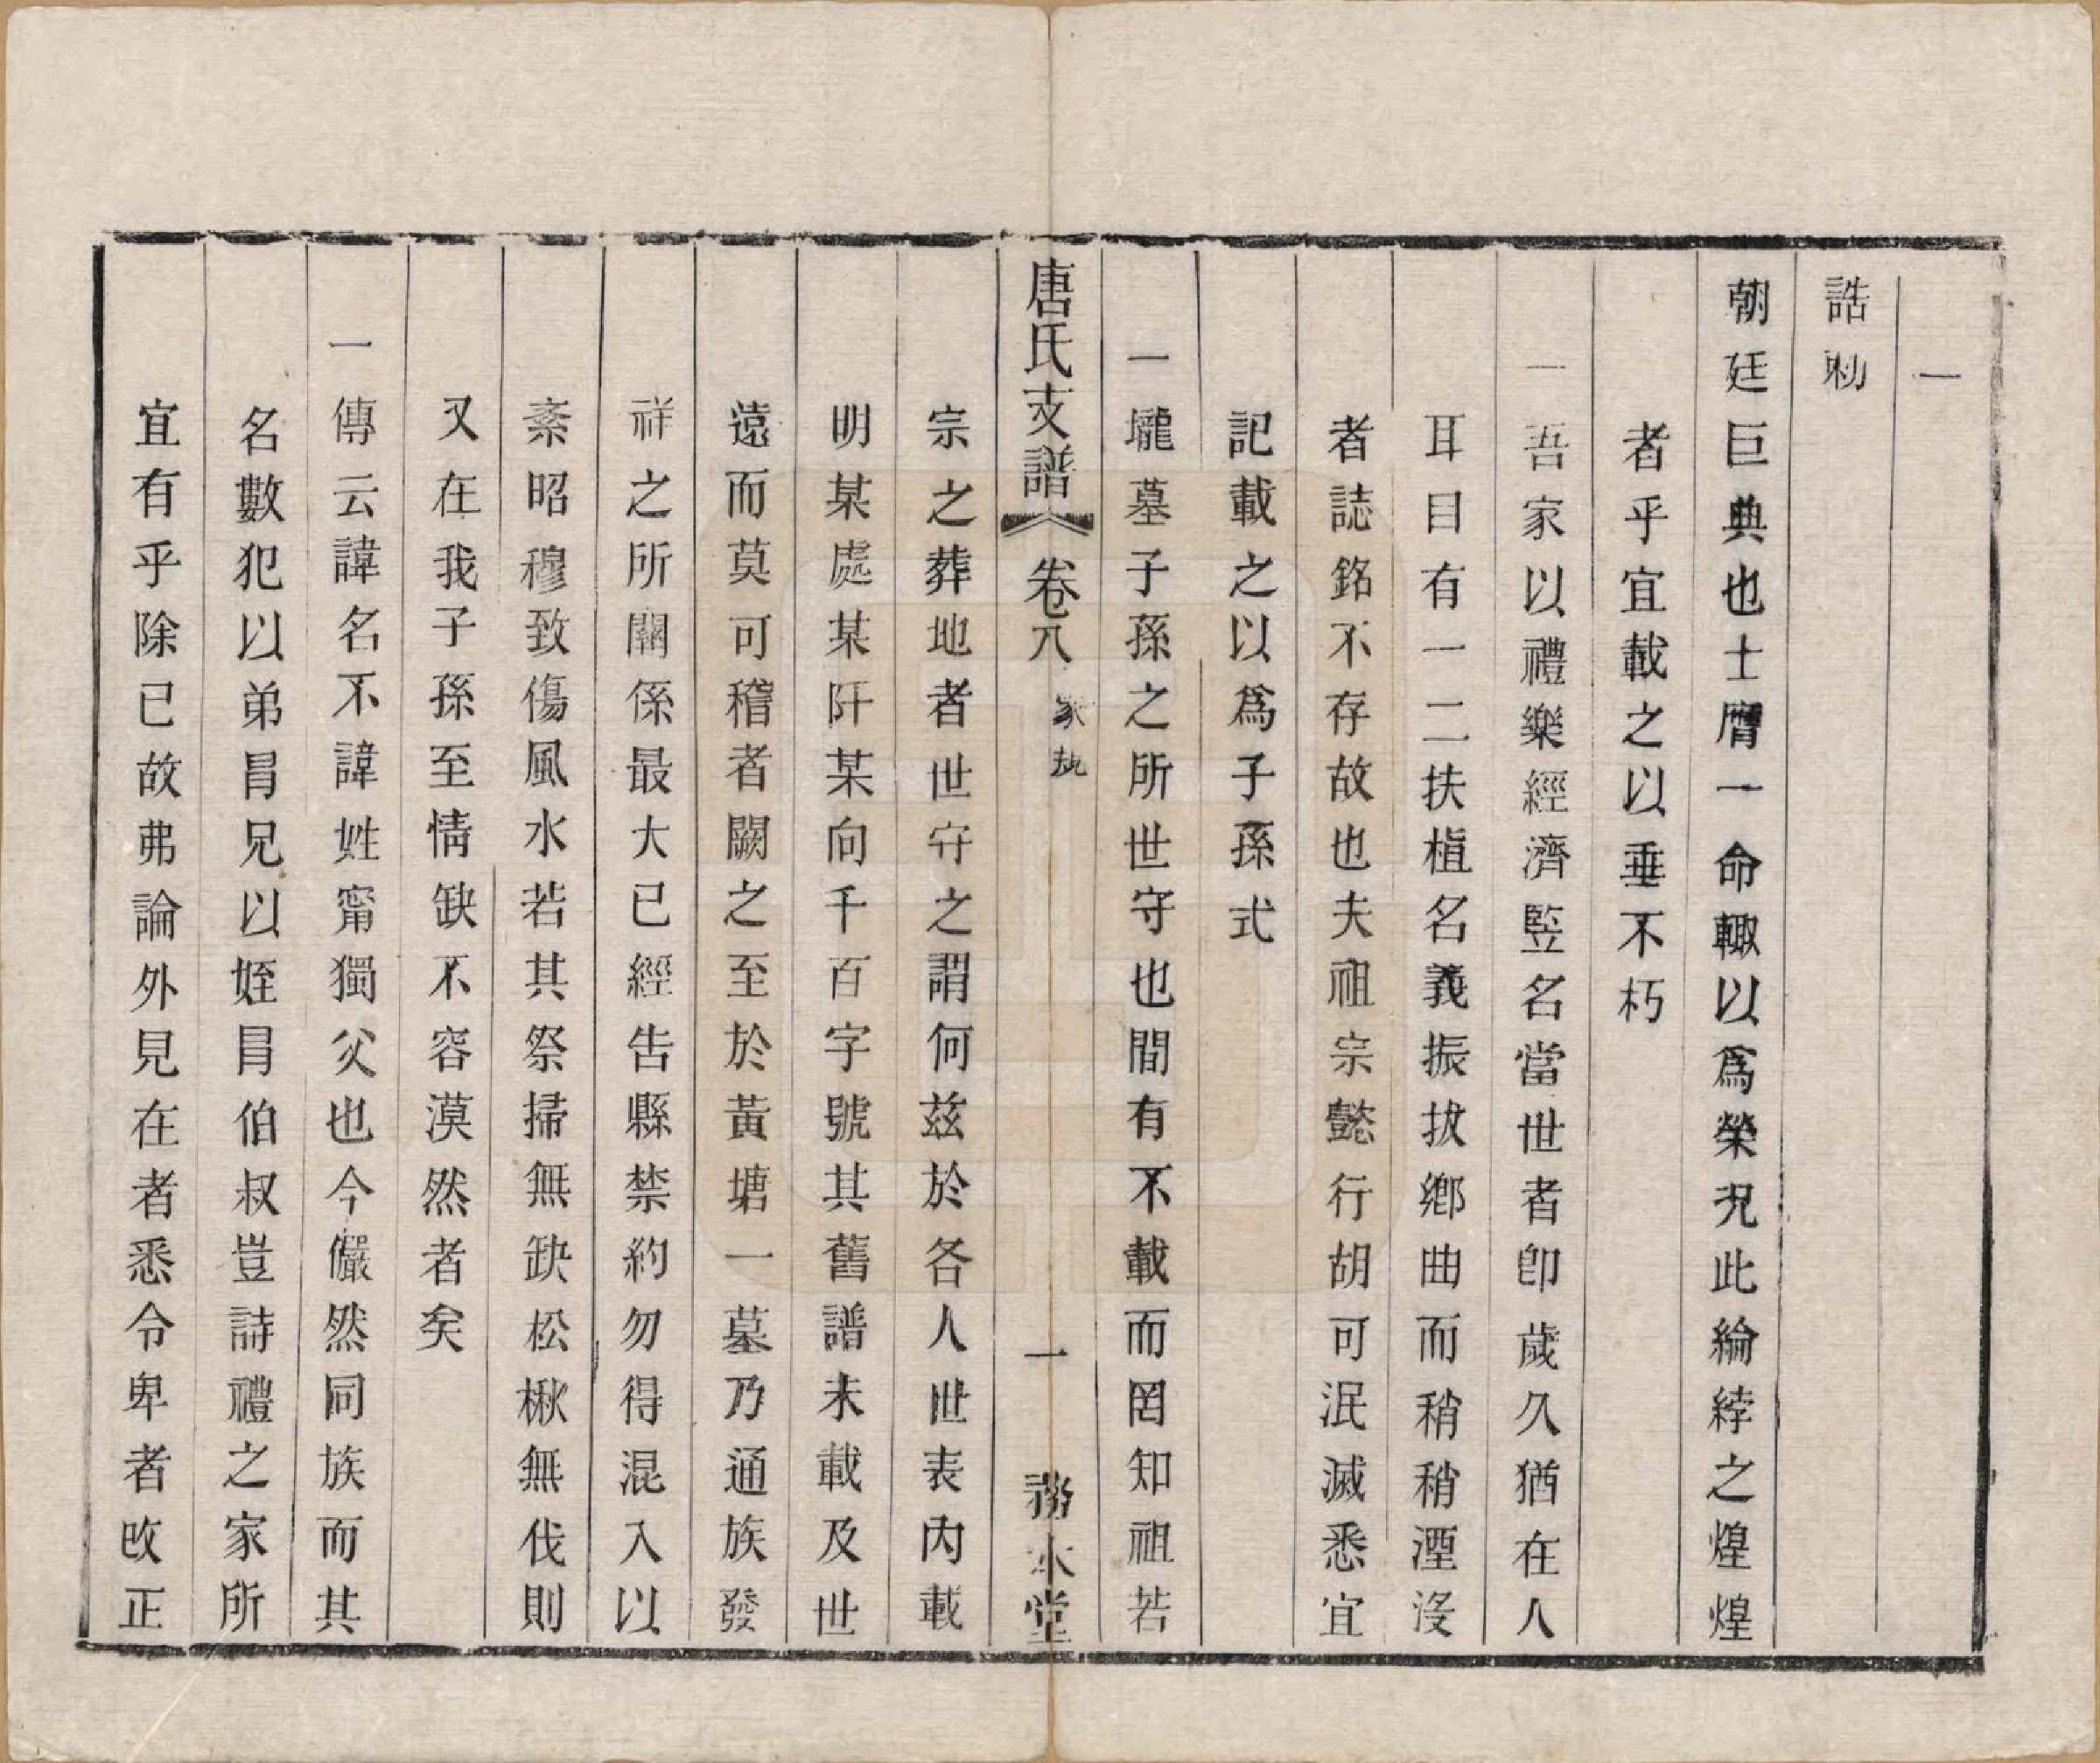 一
誥勑
朝廷巨典也士膺一命輙以爲榮况此綸綍之煌煌
者乎宜載之以垂不朽
一吾家以禮樂經濟竪名當世者卽歲久猶在人
耳目有一二扶植名義振拔鄉曲而稍稍湮沒
者誌銘不存故也夫祖宗懿行胡可泯滅悉宜
記載之以爲子孫式
一壠墓子孫之所世守也間有不載而罔知祖若
唐氏支譜 卷八 一 務本堂
宗之葬地者世守之謂何茲於各人世表內載
明某處某阡某向千百字號其舊譜未載及世
遠而莫可稽者闕之至於黃塘一墓乃通族發
祥之所關係最大已經告縣禁約勿得混入以
紊昭穆致傷風水若其祭掃無缺松楸無伐則
又在我子孫至情缺不容漠然者矣
一傳云諱名不諱姓甯獨父也今儼然同族而其
名數犯以弟冐兄以姪冐伯叔豈詩禮之家所
宜有乎除已故弗論外見在者悉令卑者改正